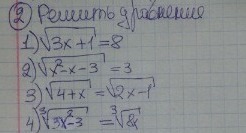 ② Решить уравнения
1) √3x+1 = 8
2) √x²-x-3 = 3
3) √4+x = √2x-1
4) ³√3x²-3 = ³√8x